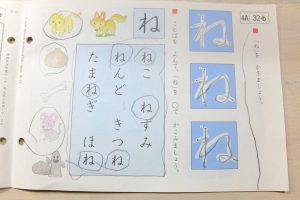 4A 32-b
「ね」を かきましょう。
ね
ね
ね
ことばを よんで、「ね」を ○で かこみましょう。
ね
ねこ ねずみ
ねんど きつね
たまねぎ ほね